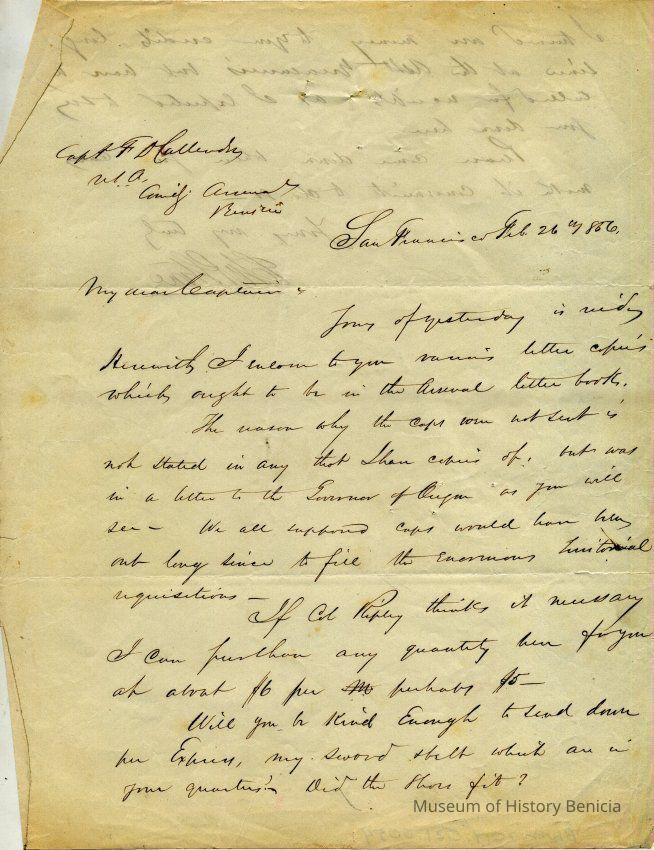 Capt F D Callender
U.S.A.
Comdg Arsenal
Benicia
San Francisco Feb. 26th 1856.
My dear Captain,
Yours of yesterday is recd
Herewith I enclose to you various letter copies
which ought to be in the Arsenal letter books.
The reason why the caps were not sent is
not stated in any that I have copies of, but was
in a letter to the Governor of Oregon as you will
see — We all supposed caps would have been
out long since to fill the Enormous Territorial
requisitions —
If Col Ripley thinks it necessary
I can purchase any quantity here for you
at about $6 per M perhaps $5 —
Will you be kind Enough to send down
per Express, my sword & belt which are in
your quarters — Did the shoes fit?
Museum of History Benicia